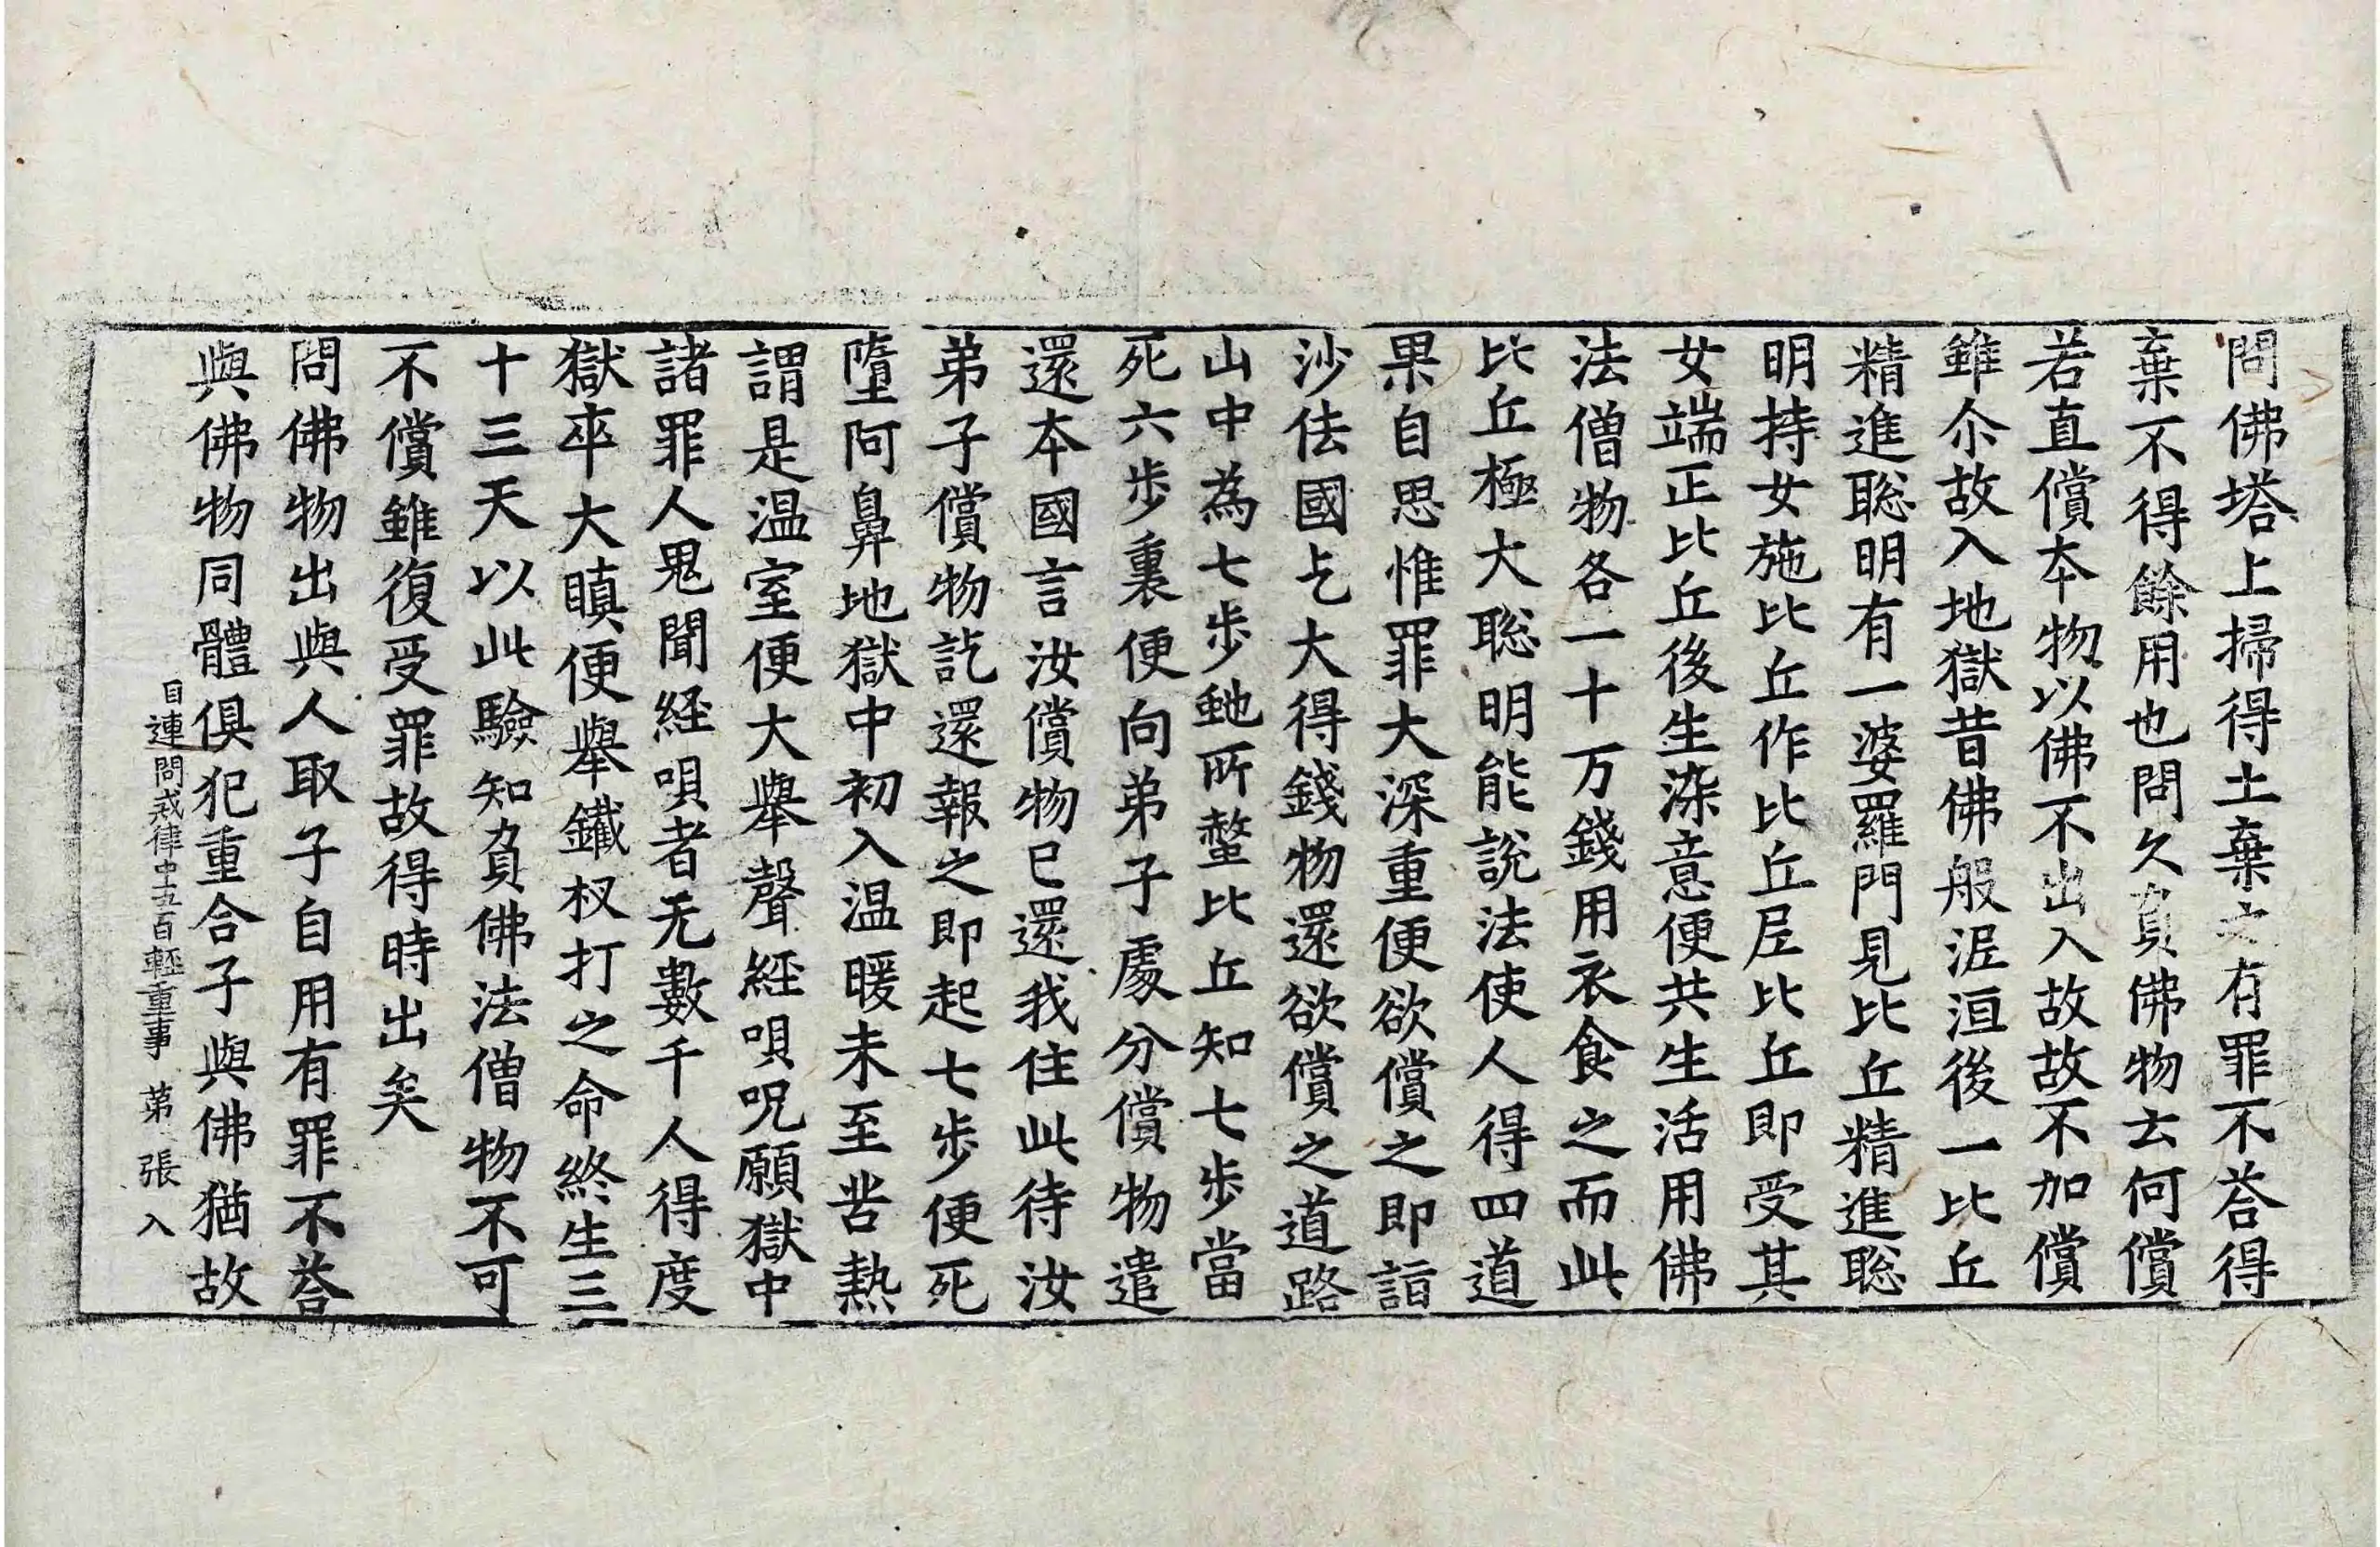 問佛塔上掃得土棄之有罪不荅得
棄不得餘用也問久負佛物去何償
若直償本物以佛不出入故故不加償
雖尒故入地獄昔佛般泥洹後一比丘
精進聡明有一婆羅門見比丘精進聡
明持女施比丘作比丘尼比丘即受其
女端正比丘後生染意便共生活用佛
法僧物各一十万錢用衣食之而此
比丘極大聡明能説法使人得四道
果自思惟罪大深重便欲償之即詣
沙佉國乞大得錢物還欲償之道路
山中為七步虵所螫比丘知七步當
死六步裏便向弟子處分償物遣
還本國言汝償物已還我住此待汝
弟子償物訖還報之即起七步便死
墮阿鼻地獄中初入温暖未至苦熱
謂是温室便大舉聲経唄呪願獄中
諸罪人鬼聞経唄者无數千人得度
獄卒大瞋便舉鐵杈打之命終生三
十三天以此驗知負佛法僧物不可
不償雖復受罪故得時出矣
問佛物出與人取子自用有罪不荅
與佛物同體俱犯重合子與佛猶故
目連問戒律中五百輕重事 第 張 入